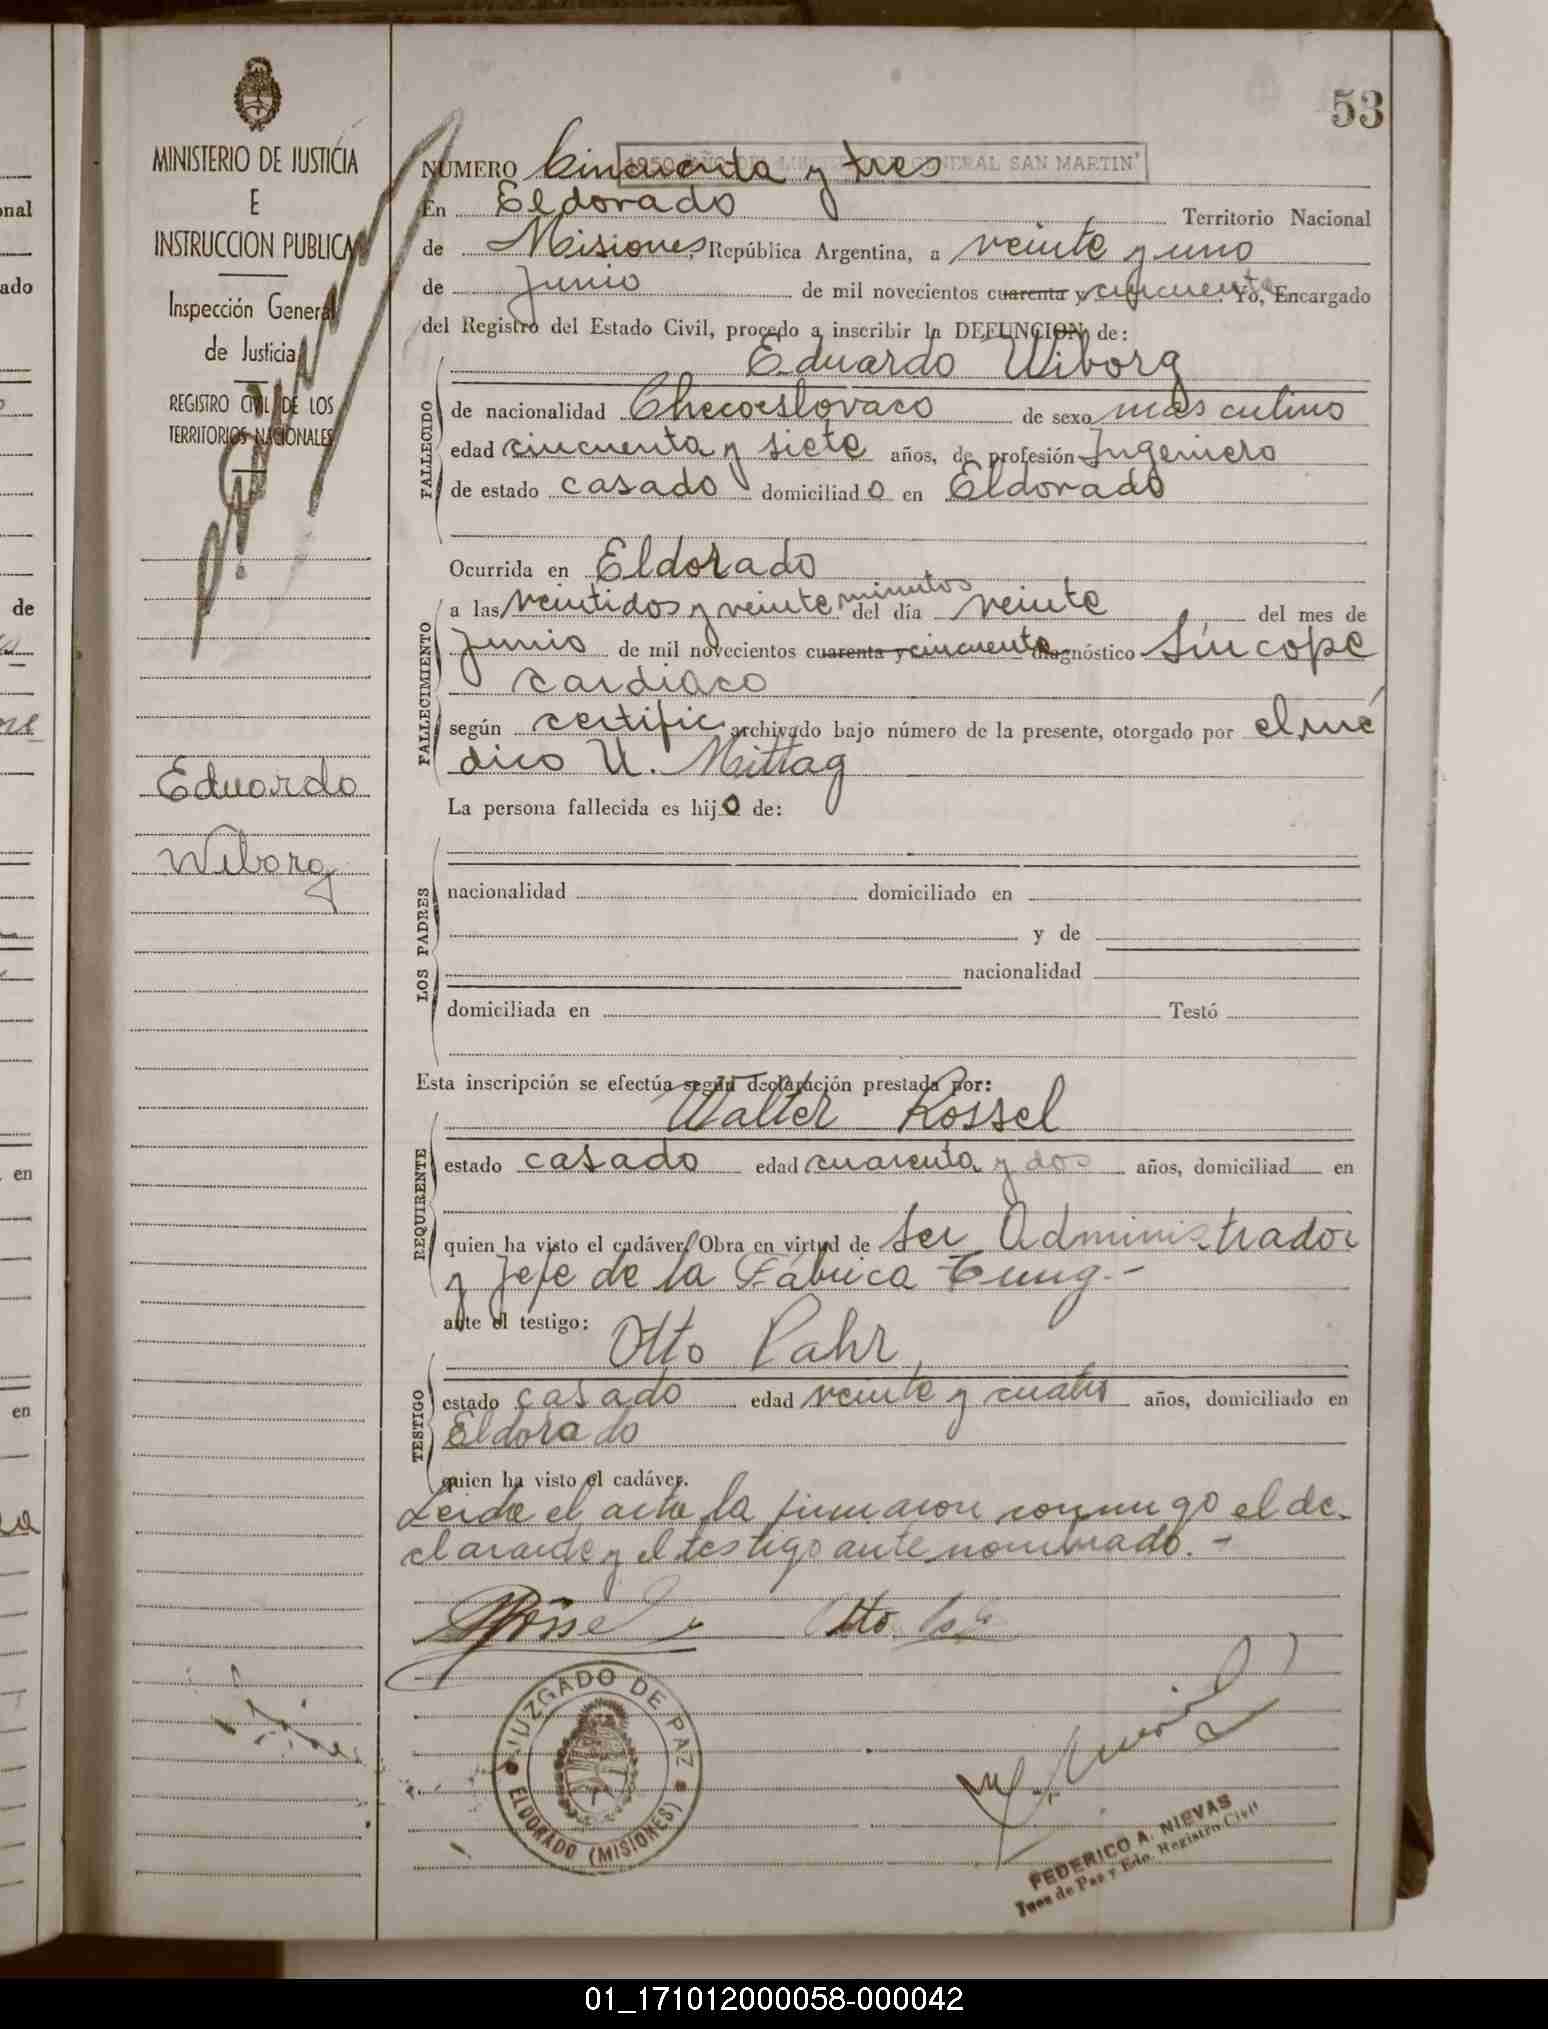 53
MINISTERIO DE JUSTICIA
E
INSTRUCCION PUBLICA
Inspección General
de Justicia
REGISTRO CIVIL DE LOS
TERRITORIOS NACIONALES
Eduardo
Wiborg
GENERAL SAN MARTIN"
NUMERO Cincuenta y tres
En Eldorado Territorio Nacional
de Misiones, República Argentina, a veinte y uno
de Junio de mil novecientos cuarenta y cincuenta. Yo, Encargado
del Registro del Estado Civil, procedo a inscribir la DEFUNCION de:
Eduardo Wiborg
FALLECIDO
de nacionalidad Checoeslovaco de sexo masculino
edad cincuenta y siete años, de profesión Ingeniero
de estado casado domiciliado en Eldorado
Ocurrida en Eldorado
FALLECIMIENTO
a las veintidos y veinte minutos del día veinte del mes de
Junio de mil novecientos cuarenta y cincuenta diagnóstico Síncope
cardiaco
según certific. archivado bajo número de la presente, otorgado por el mé
dico U. Mittag
La persona fallecida es hijo de:
LOS PADRES
nacionalidad domiciliado en
y de
nacionalidad
domiciliada en Testó
Esta inscripción se efectúa según declaración prestada por:
Walter Rossel
REQUIRENTE
estado casado edad cuarenta y dos años, domiciliad en
quien ha visto el cadáver. Obra en virtud de ser Administrador
y jefe de la Fábrica Tung.-
ante el testigo:
Otto Pahr
TESTIGO
estado casado edad veinte y cuatro años, domiciliado en
Eldorado
quien ha visto el cadáver.
Leida el acta la firmaron conmigo el de-
clarante y el testigo ante nombrado.-
Otto
JUZGADO DE PAZ
ELDORADO (MISIONES)
FEDERICO A. NIEVAS
Juez de Paz y Edo. Registro Civil
01_171012000058-000042